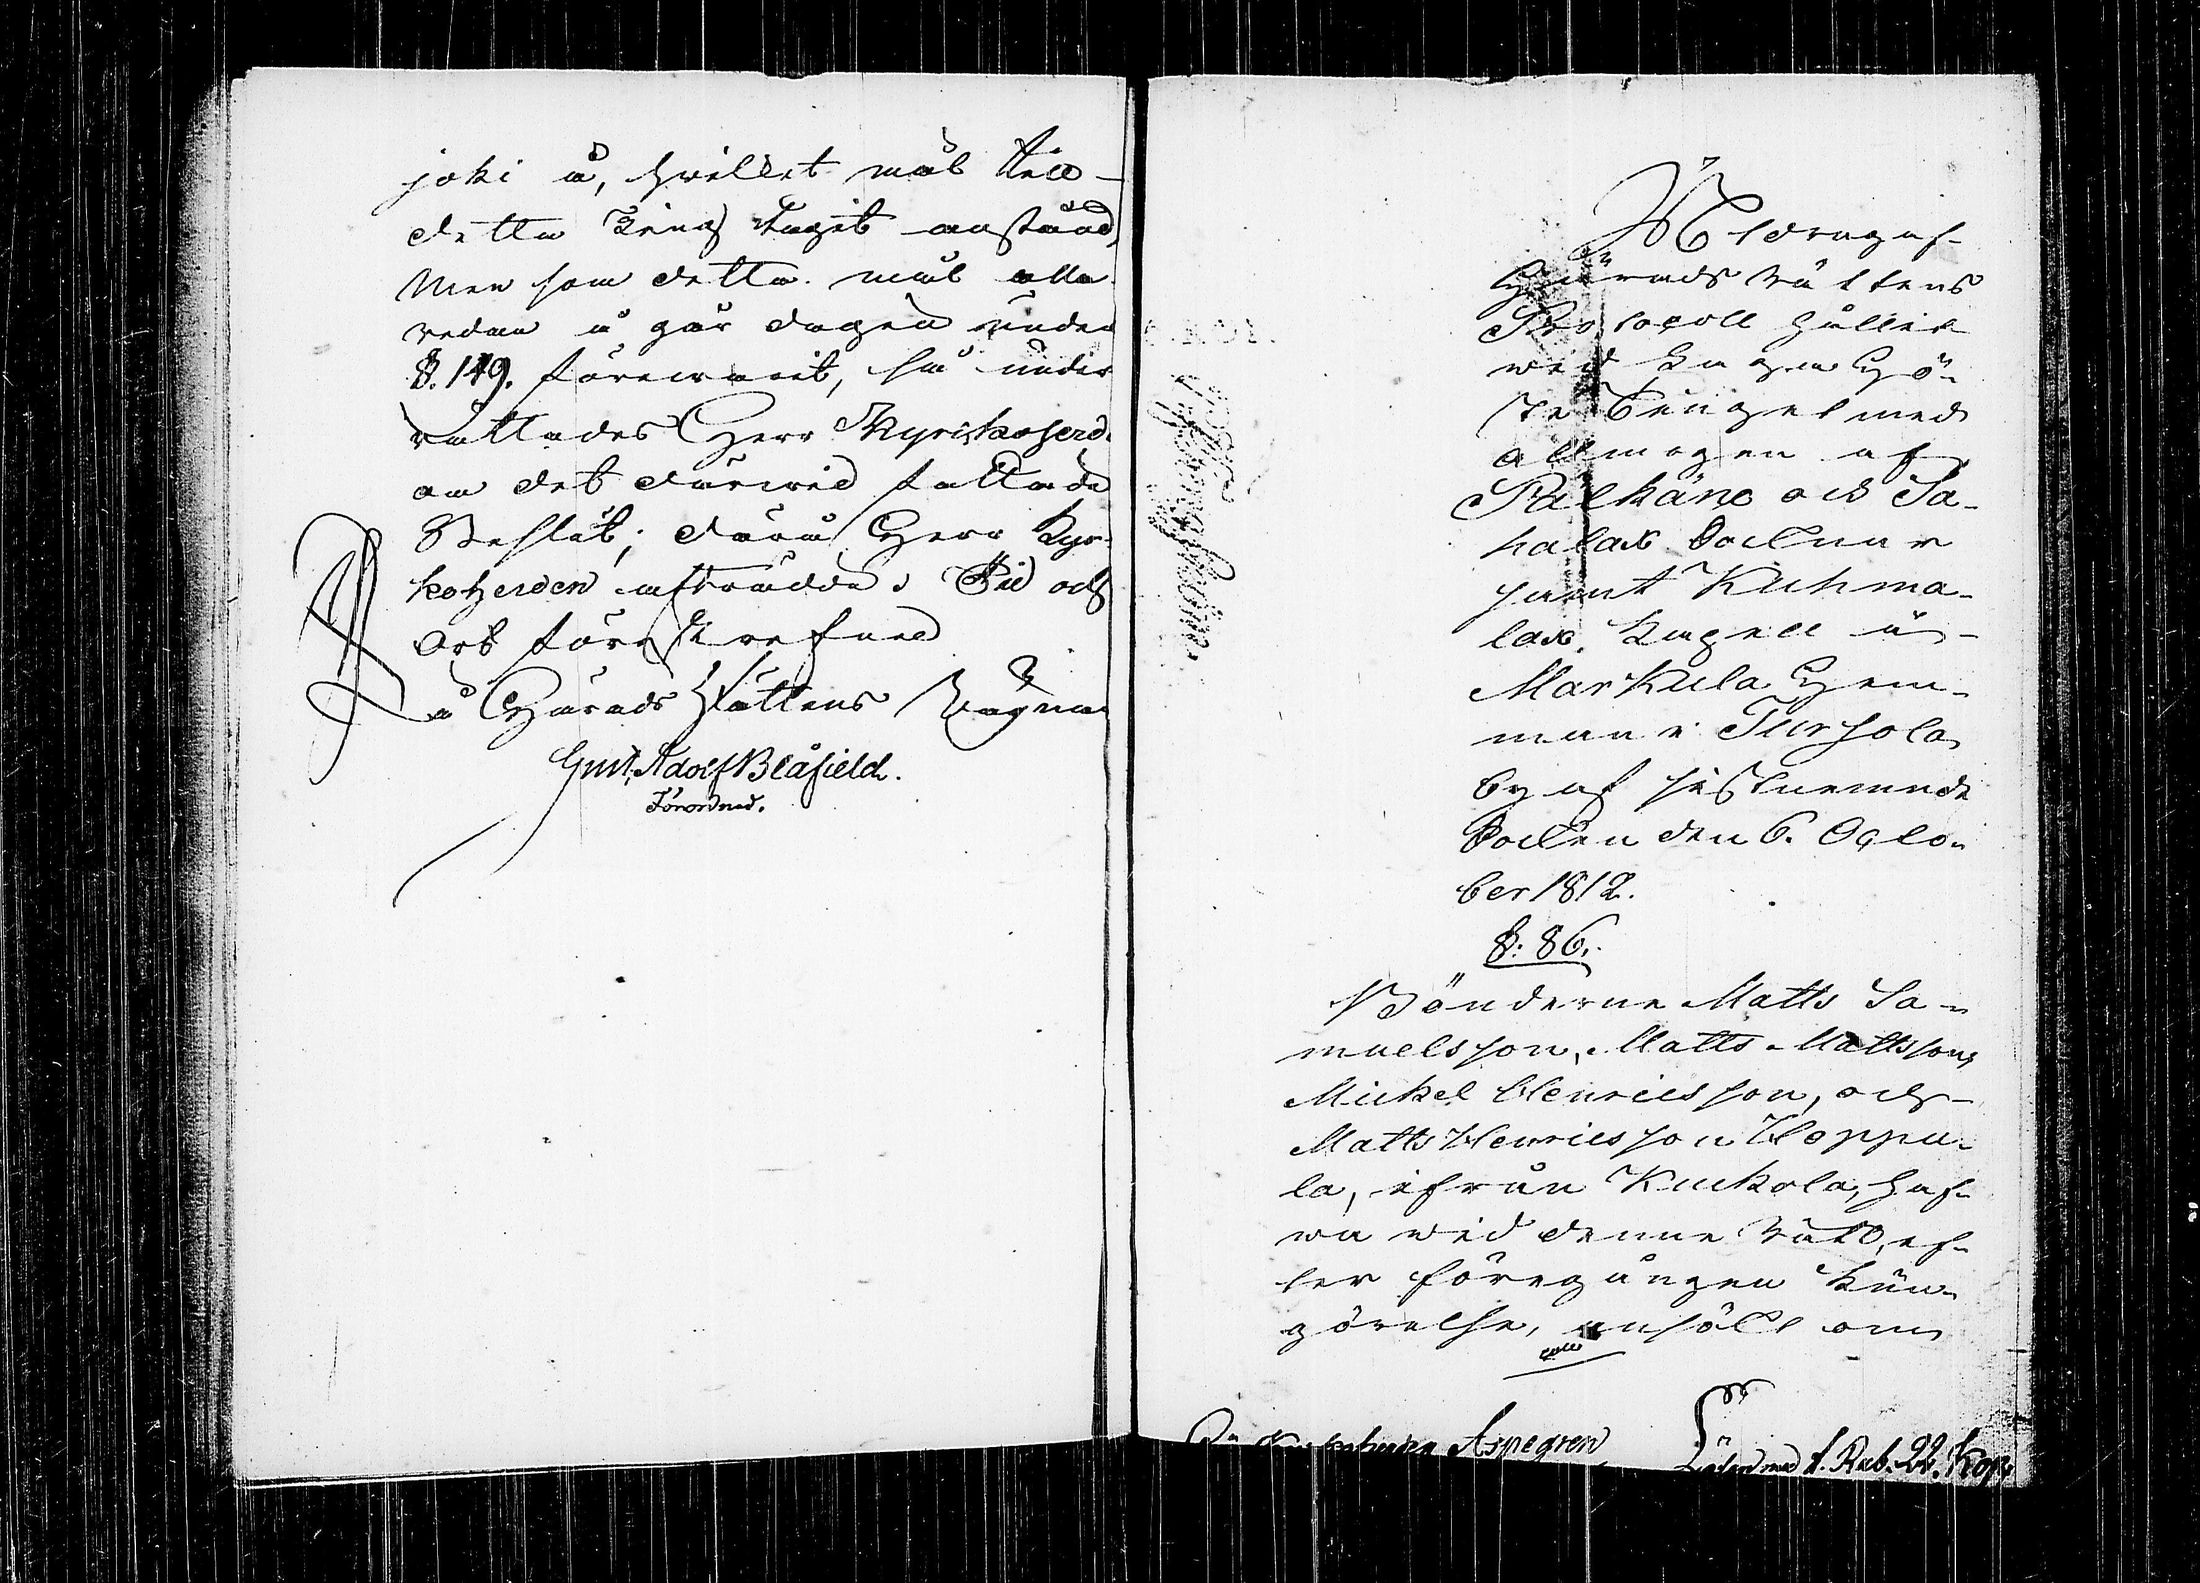 joki å, hvilket mål till
detta Ting tagit anstånd,
Men som detta mål alla
redan i går dagen under
§. 149. förewarit, så under
rättades Herr Kyrckoherd.
om det därwid fattade
Beslut; därå Herr Kyr-
koherden afträdde. Tid och
Ort föreskrefne
På Härads Rättens Wägnar
Gust. Adolf Blåfield.
Förordnad.
Utdrag af
Härads Rättens
Protocoll hållit
wid Laga Hö-
ste Tinget med
allmogen af
Pälkäne och Sa-
halax Socknar
samt Kuhma-
lax Kapell å
Markula Hem-
man i Tursola
by af sistnemnde
Socken den 6. Octo-
ber 1812.
§: 86.
Bönderne Matts Sa-
muelsson, Matts Mattsson,
Mickel Henricsson, och
Matts Henricsson Hoppu-
la, ifrån Kuckola, haf-
wa wid denne Rätt, ef-
ter föregången kun-
görelse, ansökt om
Aspegren
Löser med 1. Rub. 22. Kop